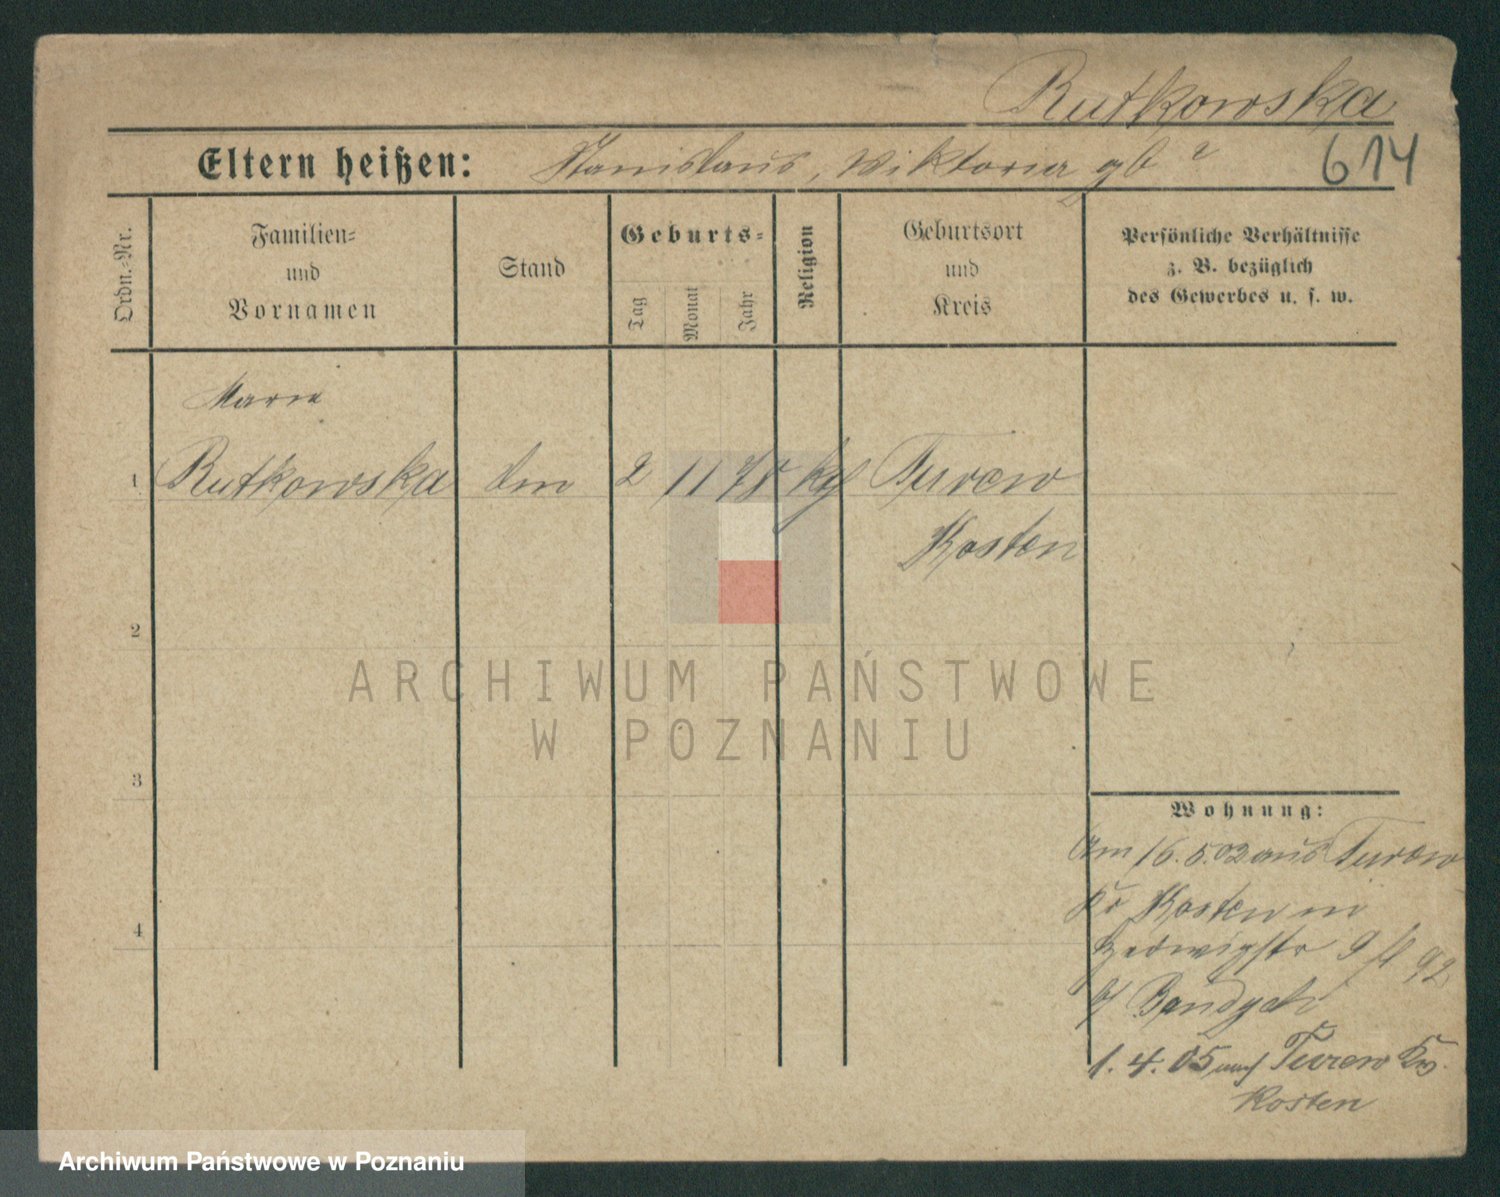 Rutkowska
Eltern heißen: Stanislaus, Wiktoria gb ?
614
Ordn.-Nr.
Familien-
und
Vornamen
Stand
Geburts-
Tag
Monat
Jahr
Religion
Geburtsort
und
Kreis
Persönliche Verhältnisse
z. B. bezüglich
des Gewerbes u. s. w.
Marie
1 Rutkowska 2 11 78 kth Turew
Kosten
2
3
4
ARCHIWUM PAŃSTWOWE
W POZNANIU
Wohnung:
Am 16.5.02 aus Turew
Kr Kosten in
Hedwigstr 9
b/
1.4.05 nach Turew Kr.
Kosten
Archiwum Państwowe w Poznaniu